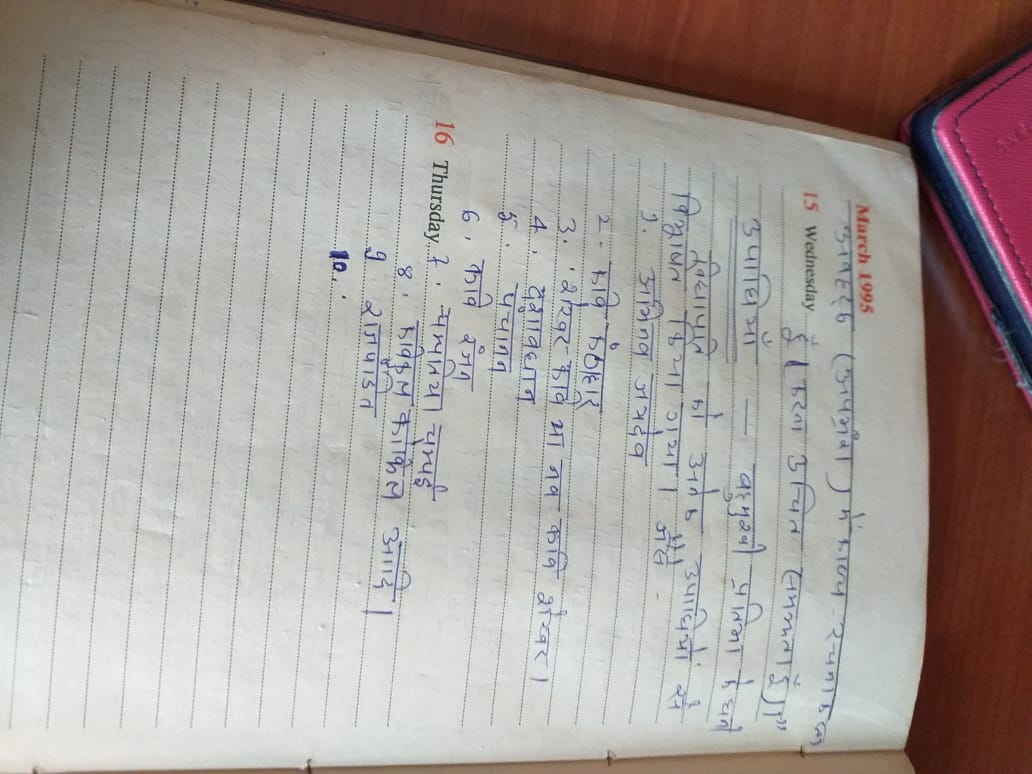 March 1995
अवहट्ठ (अपभ्रंश) में काव्य-रचना करना
15 Wednesday
हूँ। करना उचित समझता हूँ।"
उपाधियाँ — बहुमुखी प्रतिभा के धनी
विद्यापति को अनेक उपाधियों से
विभूषित किया गया। जैसे -
1. अभिनव जयदेव
2. कवि कंठहार
3. शेखर कवि या नव कवि शेखर।
4. दशावधान
5. पंचानन
6. कवि रंजन
16 Thursday
7. चम्पति या चम्पई
8. मैथिल कोकिल आदि।
9. राजपंडित
10.